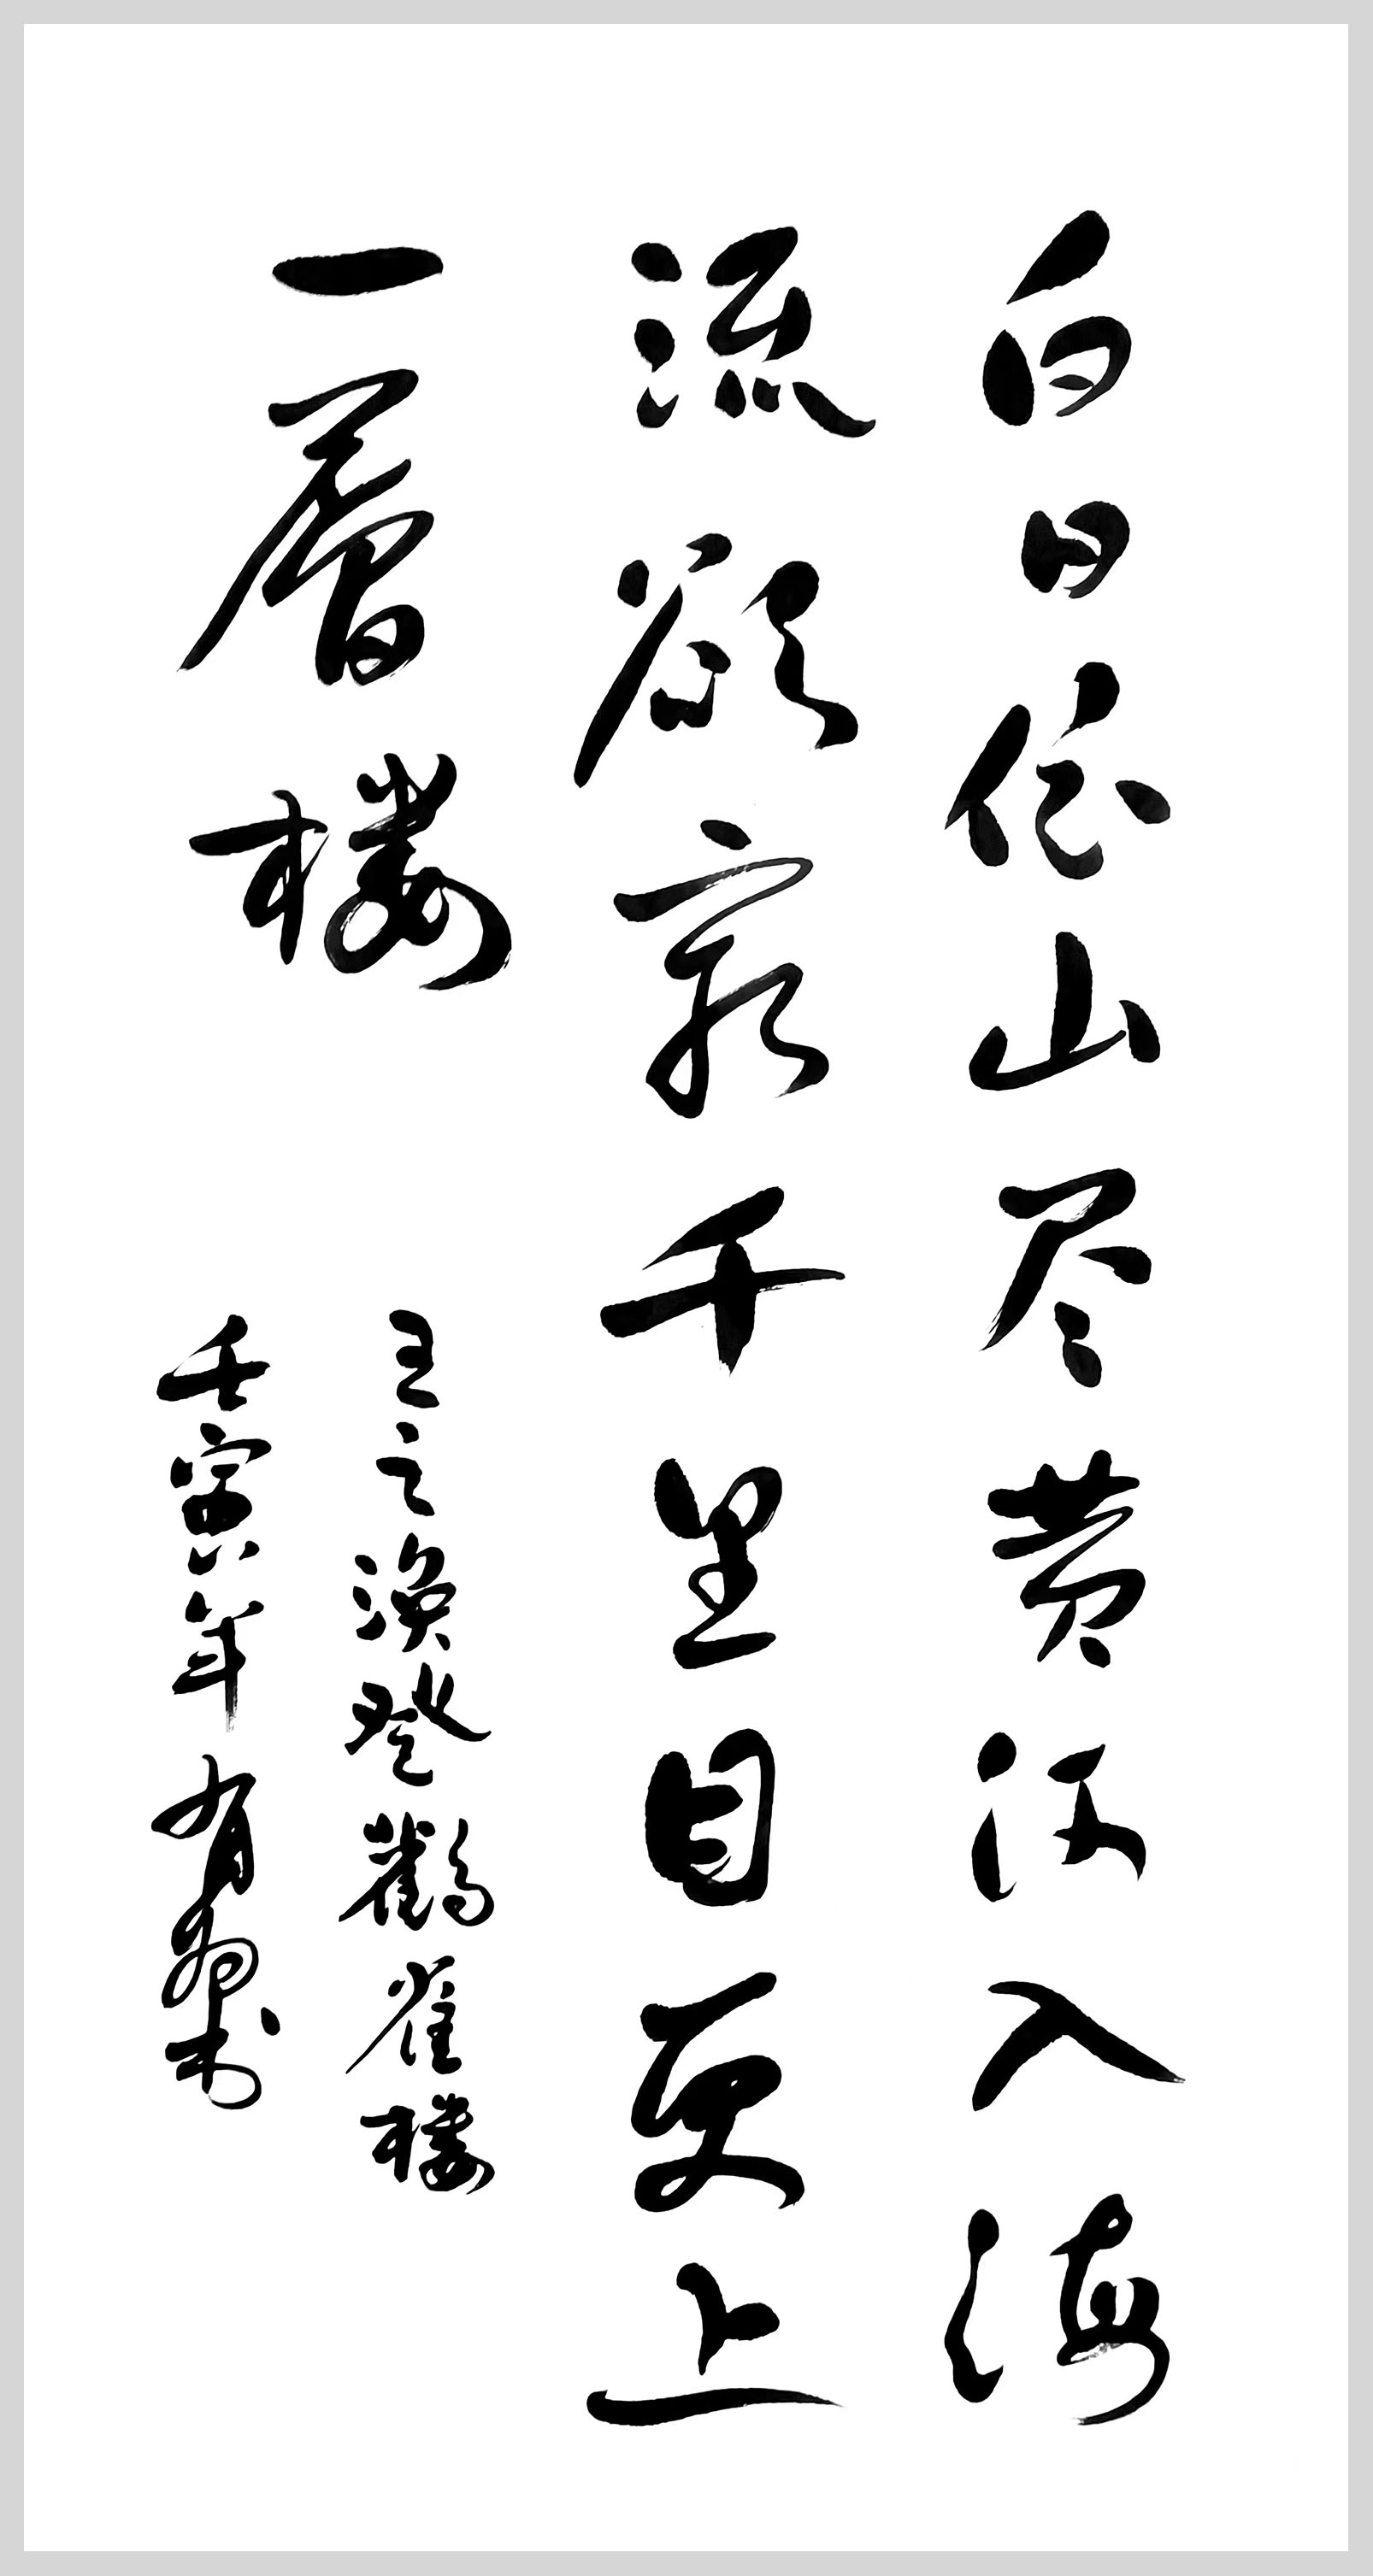 白日依山尽黄河入海
流欲穷千里目更上
一層楼
王之涣登鹳雀楼
壬寅年有书